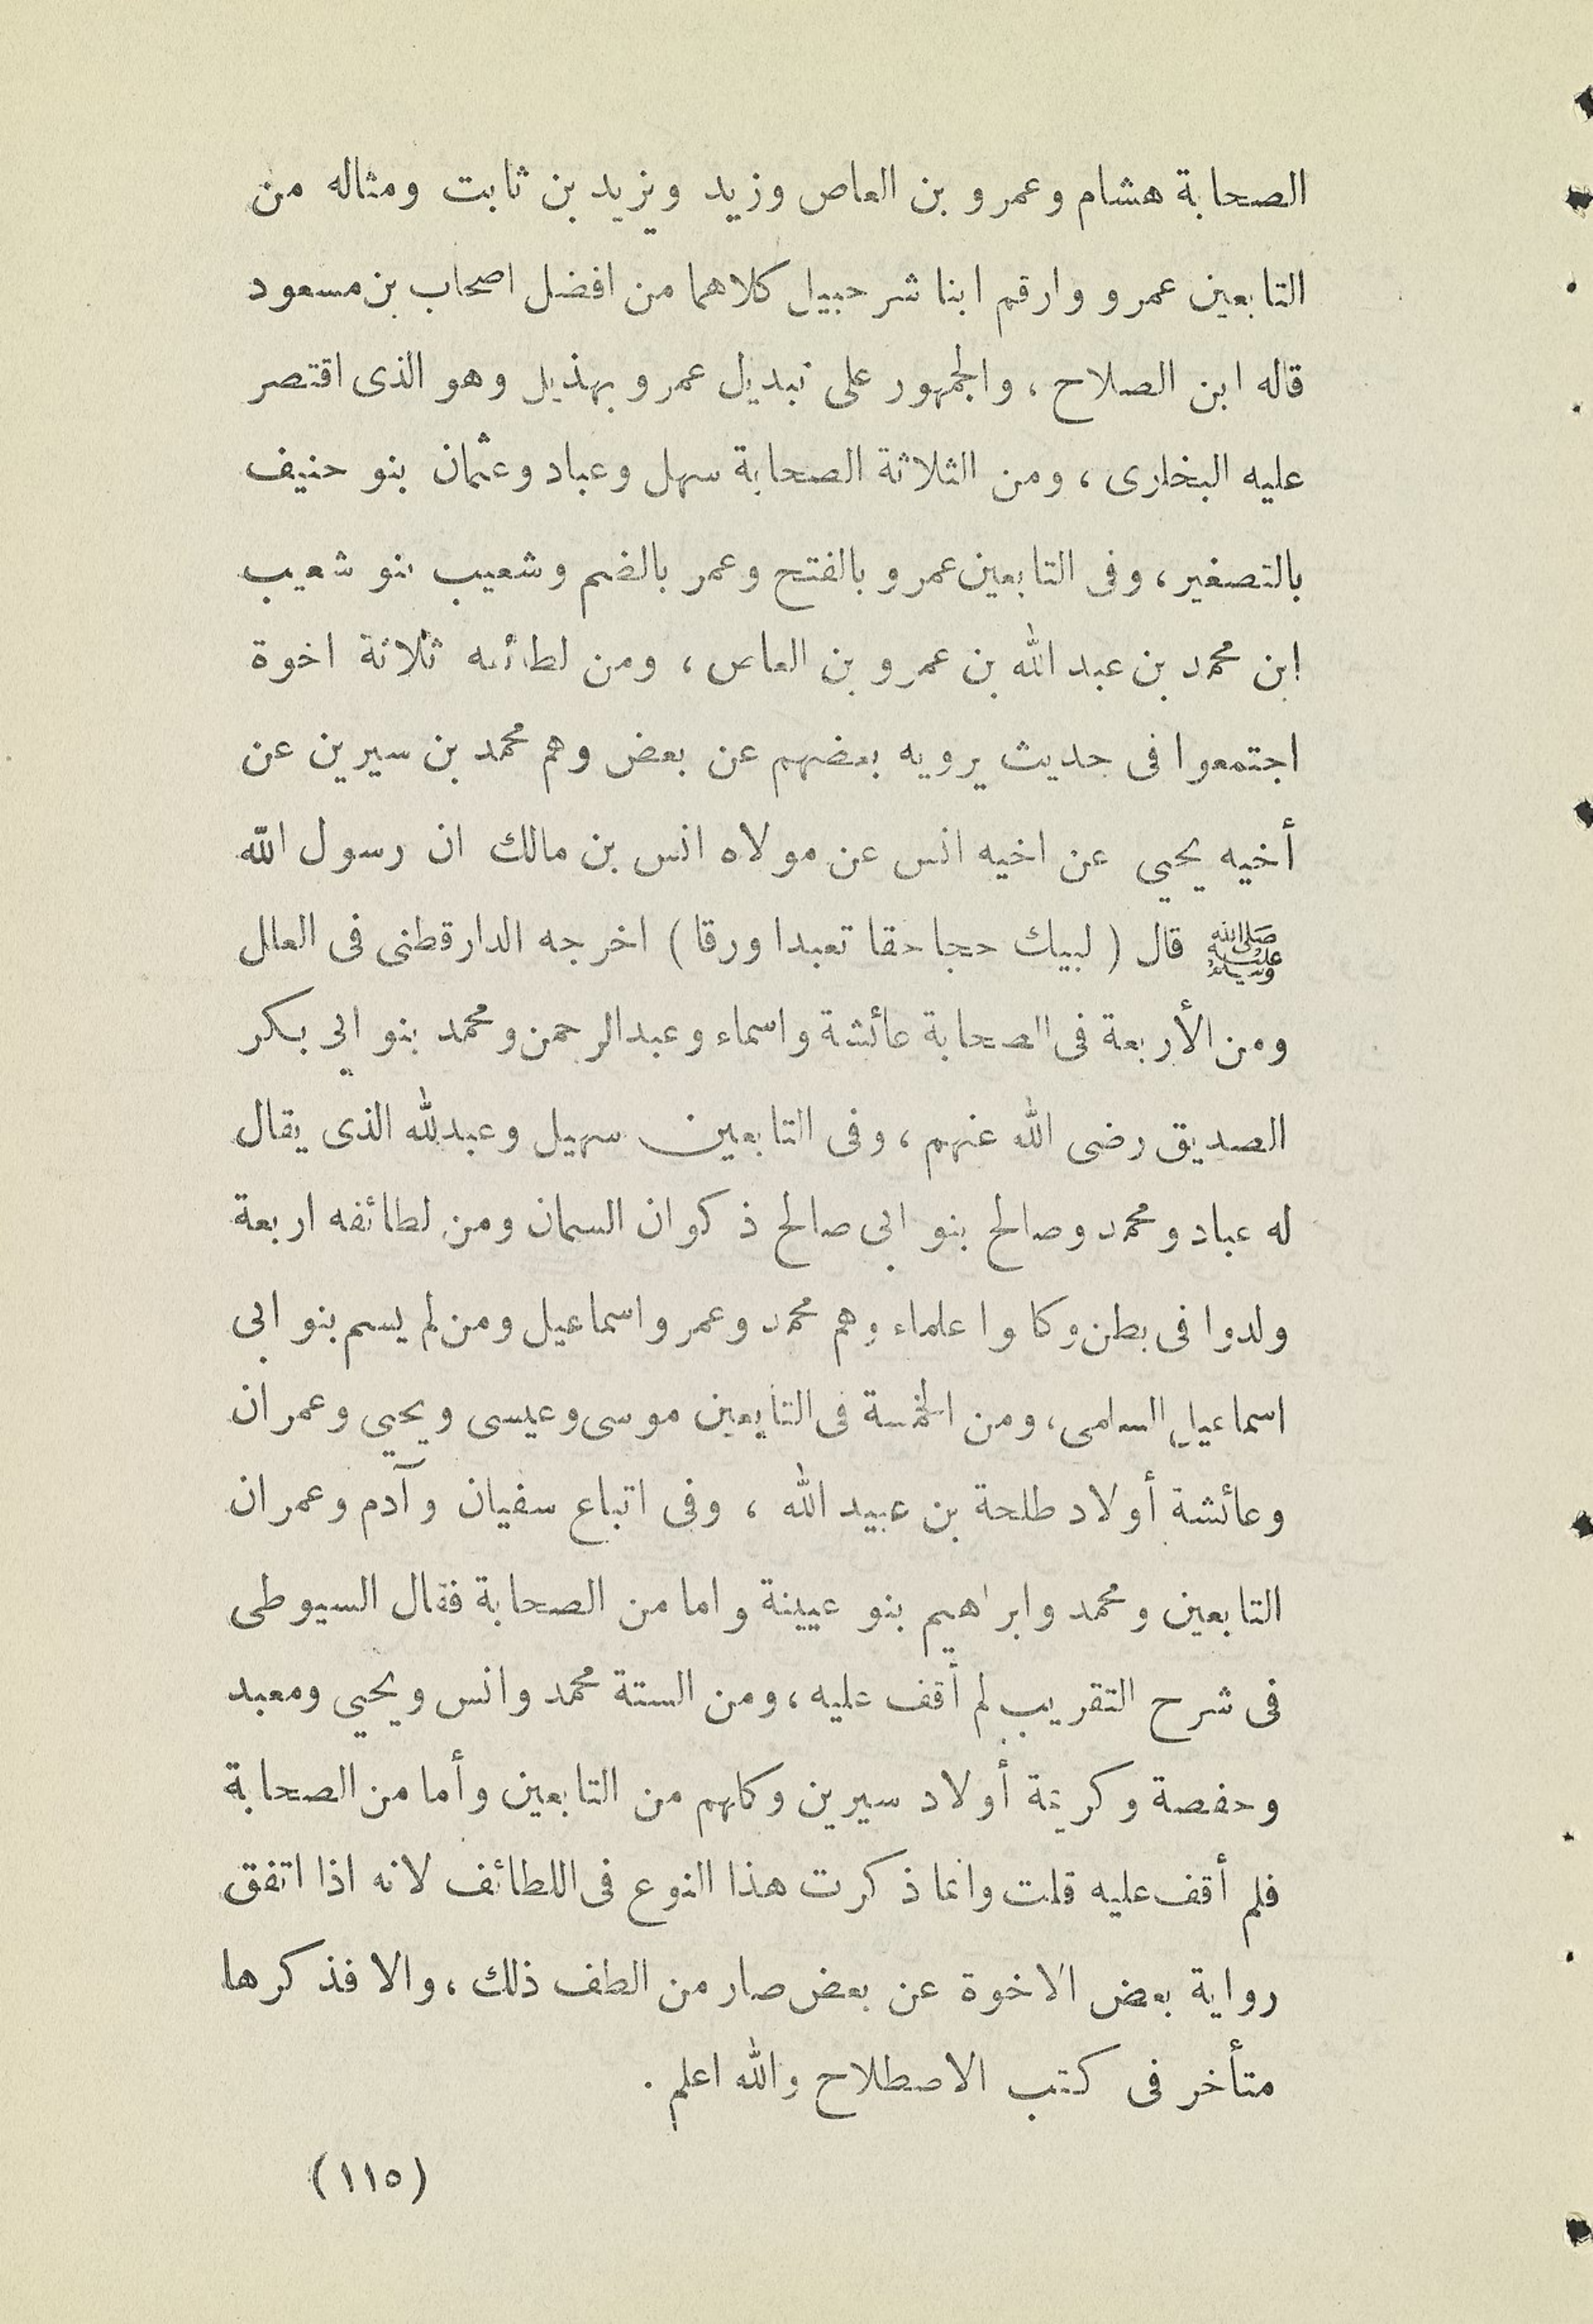 الصحابة هشام وعمرو بن العاص وزيد ويزيد بن ثابت ومثاله من
التابعين عمرو وارقم ابنا شرحبيل كلاهما من افضل اصحاب بن مسعود
قاله ابن الصلاح ، والجمهور على تبديل عمرو بهذيل وهو الذى اقتصر
عليه البخارى ، ومن الثلاثة الصحابة سهل وعباد وعثمان بنو حنيف
بالتصغير ، وفى التابعين عمرو بالفتح وعمر بالضم وشعيب بنو شعيب
ابن محمد بن عبد الله بن عمرو بن العاص ، ومن لطائفه ثلاثة اخوة
اجتمعوا فى حديث يرويه بعضهم عن بعض وهم محمد بن سيرين عن
أخيه يحيي عن اخيه انس عن مولاه انس بن مالك ان رسول الله
ﷺ قال ( لبيك حجا حقا تعبدا ورقا ) اخرجه الدارقطنى فى العلل
ومن الأربعة فى الصحابة عائشة واسماء وعبدالرحمن ومحمد بنو ابي بكر
الصديق رضى الله عنهم ، وفى التابعين سهيل وعبدلله الذى يقال
له عباد ومحمد وصالح بنو ابى صالح ذكوان السمان ومن لطائفه اربعة
ولدوا فى بطن وكا وا علماء وهم محمد وعمر واسماعيل ومن لم يسم بنو ابى
اسماعيل السامى ، ومن الخمسة فى التابعين موسى وعيسى ويحيي وعمران
وعائشة أولاد طلحة بن عبيد الله ، وفى اتباع سفيان وآدم وعمران
التابعين ومحمد وابراهيم بنو عيينة واما من الصحابة فقال السيوطى
فى شرح التقريب لم أقف عليه ، ومن الستة محمد وانس ويحيي ومعبد
وحفصة وكريمة أولاد سيرين وكلهم من التابعين وأما من الصحابة
فلم أقف عليه قلت وانما ذكرت هذا النوع فى اللطائف لانه اذا اتفق
رواية بعض الاخوة عن بعض صار من الطف ذلك ، والا فذكرها
متأخر فى كتب الاصطلاح والله اعلم .
(١١٥)